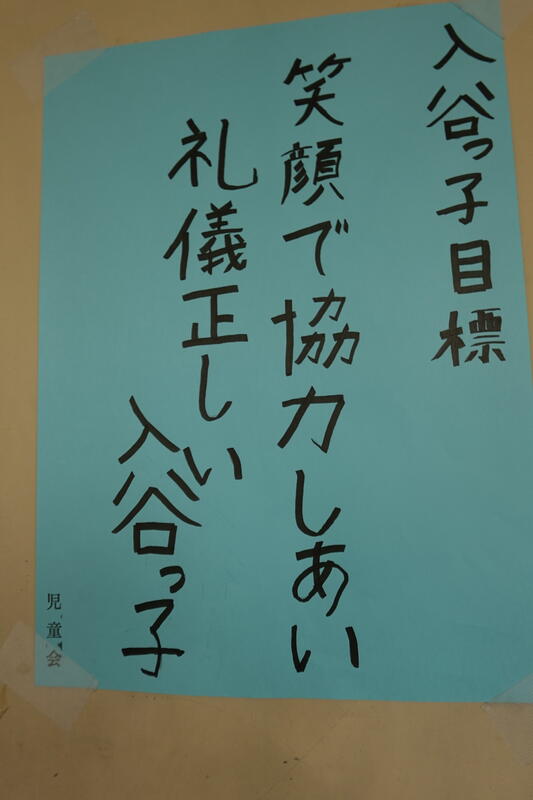 入谷っ子目標
笑顔で協力しあい
礼儀正しい
入谷っ子
児童会